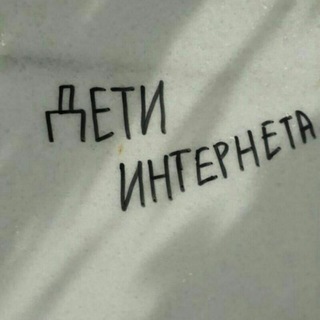 ДЕТИ
ИНТЕРНЕТА